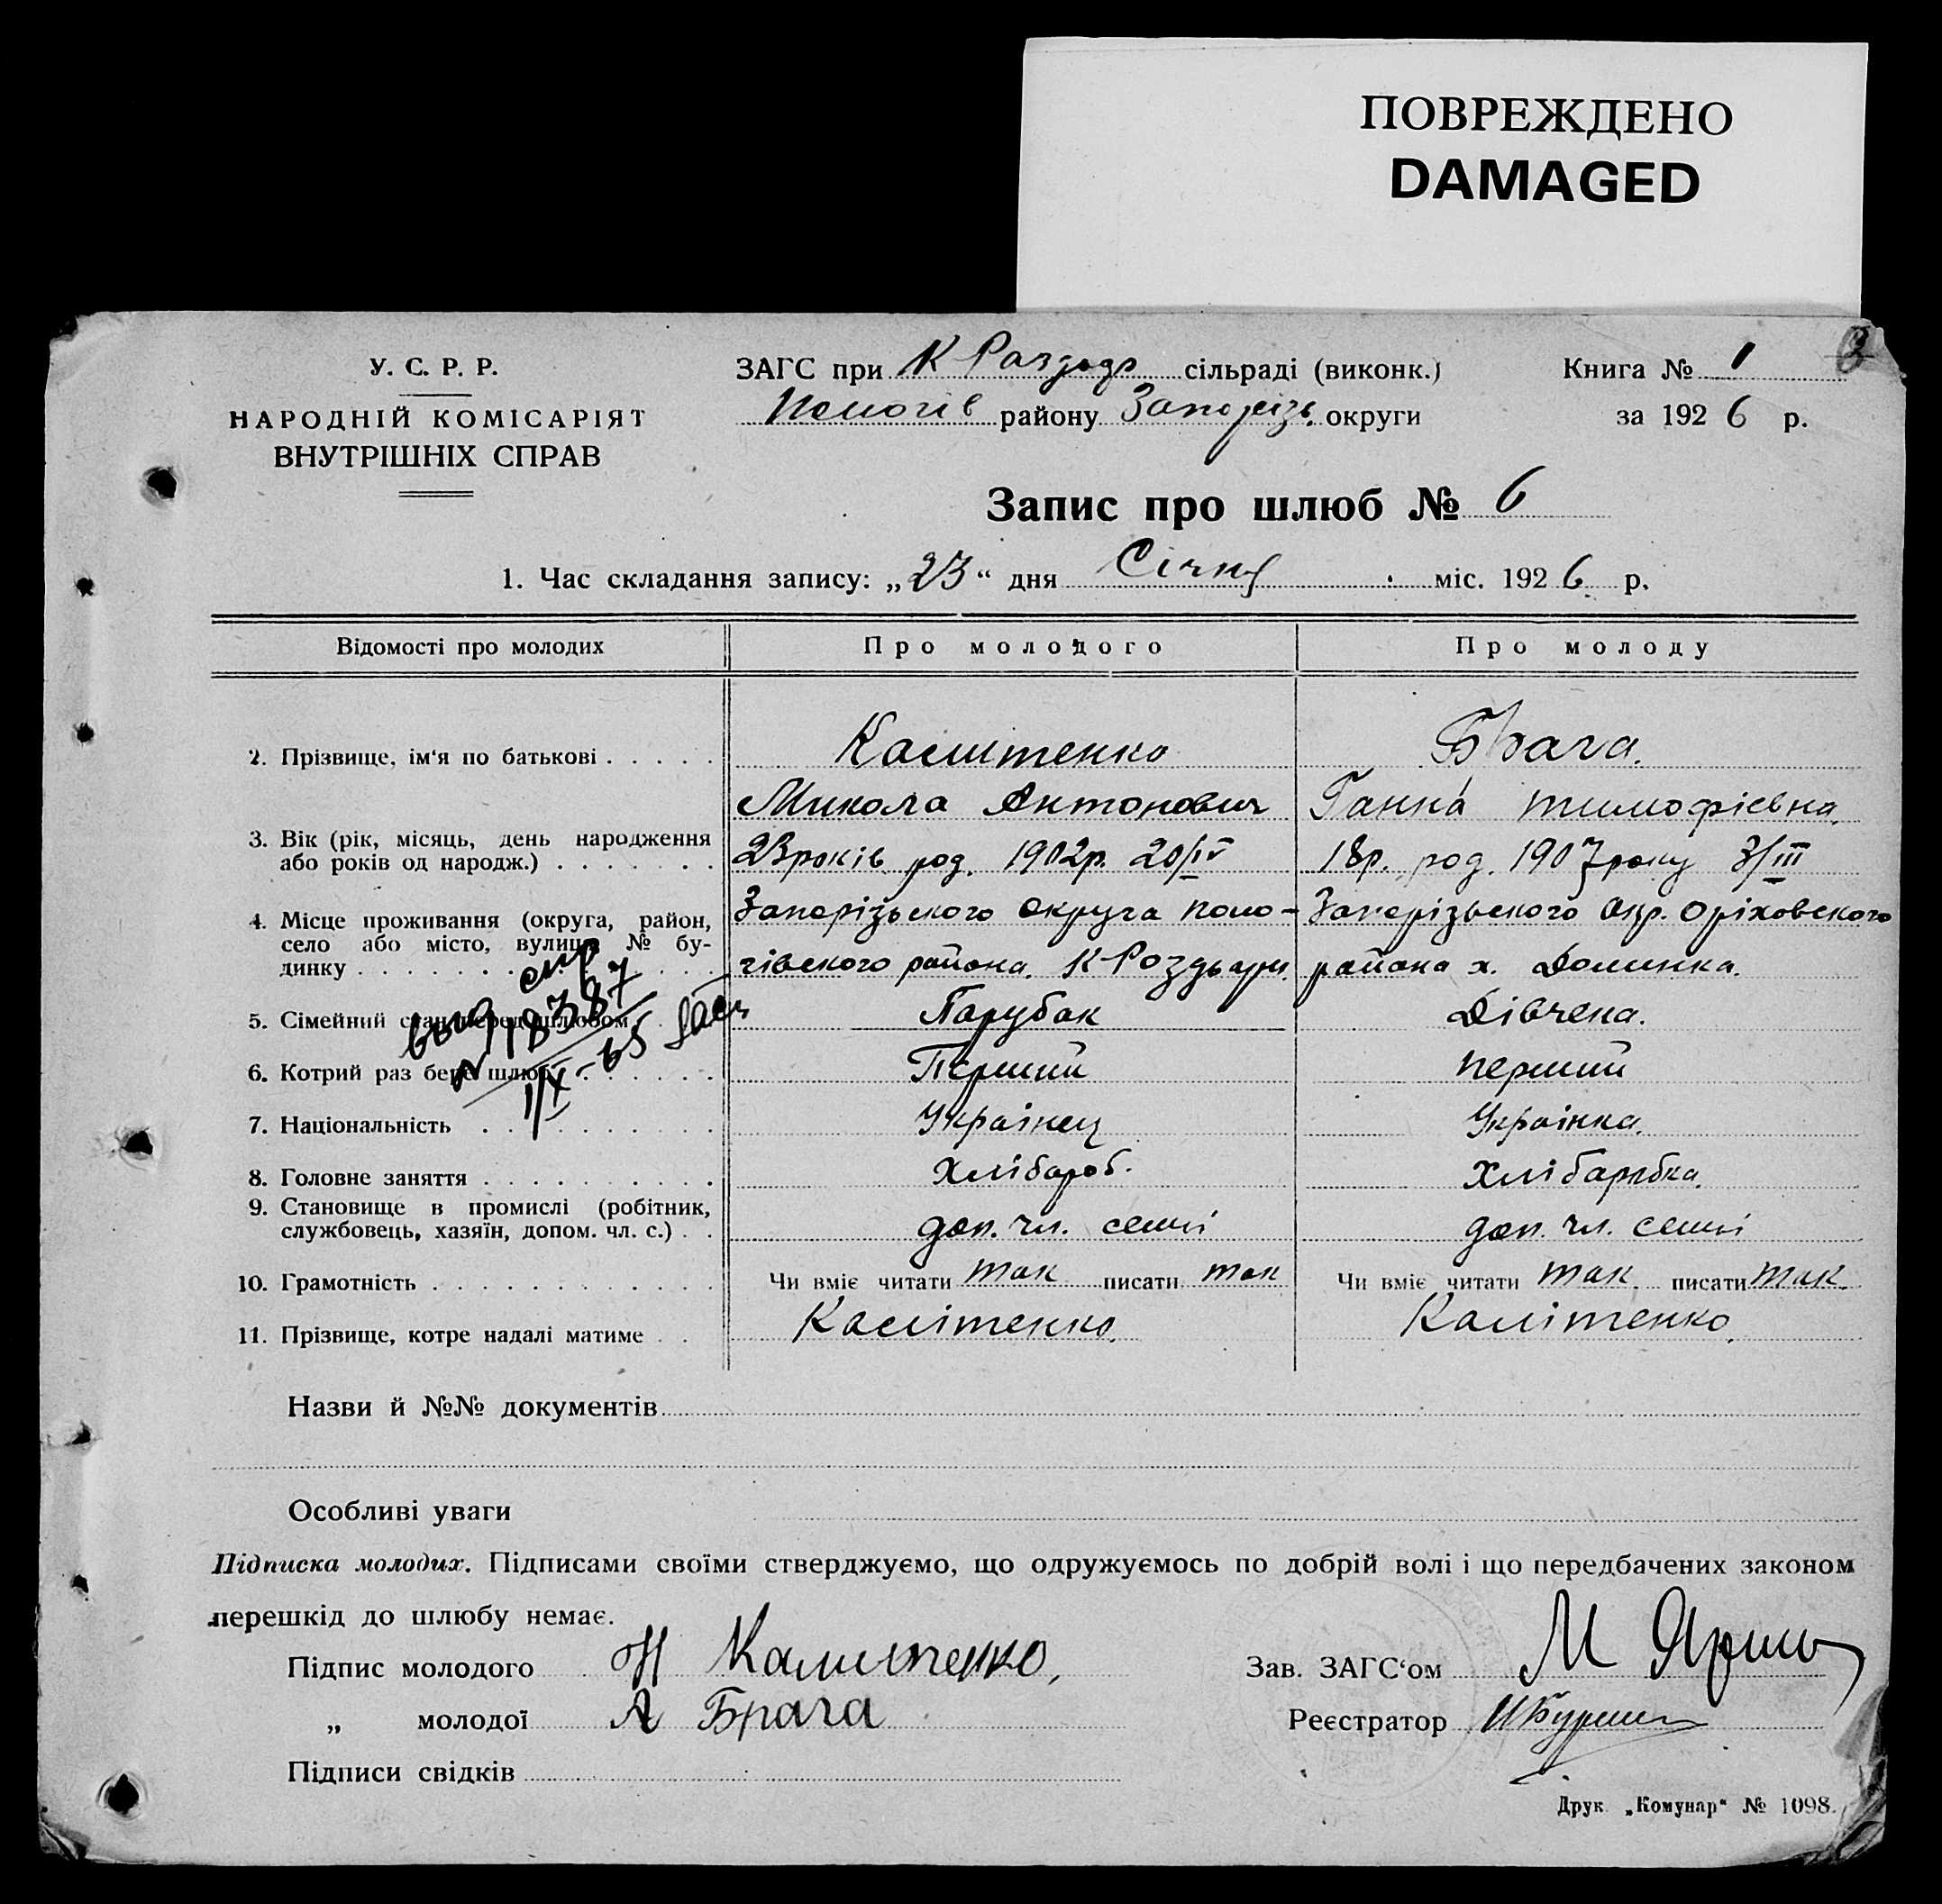 ПОВРЕЖДЕНО
DAMAGED
У. С. Р. Р.
НАРОДНІЙ КОМІСАРІЯТ
ВНУТРІШНІХ СПРАВ
ЗАГС при К Раздорс сільраді (виконк.)
Пологів району Запоріз. округи
Книга № 1
за 1926 р.
Запис про шлюб № 6
1. Час складання запису: „23“ дня Січня міс. 1926 р.
Відомості про молодих Про молодого Про молоду
2. Прізвище, ім‘я по батькові Калитенко Брага.
Микола Антонович Ганна тимофієвна.
3. Вік (рік, місяць, день народження
або років од народж.) 23 років род. 1902р. 20/IV 18р. род. 1907 року 3/III
4. Місце проживання (округа, район,
село або місто, вулиця № бу-
динку
Запорізьского округа поло-
гівского района. К-Роздори.
Запорізьского окр. Оріховского
района х. Долинка.
выд
№ 18387
1/IX-65
5. Сімейний стан перед шлюбом Парубак Дівчена.
6. Котрий раз бере шлюб Перший перший
7. Національність Українец Українка.
8. Головне заняття Хлібароб. Хлібаробка.
9. Становище в промислі (робітник,
службовець, хазяїн, допом. чл. с.) доп. чл. семьі доп. чл. семьі
10. Грамотність Чи вміє читати так писати так Чи вміє читати так писати так.
11. Прізвище, котре надалі матиме Калітенко. Калітенко.
Назви й №№ документів
Особливі уваги
Підписка молодих. Підписами своїми стверджуємо, що одружуємось по добрій волі і що передбачених законом
перешкід до шлюбу немає.
Підпис молодого Н Калитенко,
„ молодої А Брага
Підписи свідків
Зав. ЗАГС‘ом М
Реєстратор
Друк. „Комунар“ № 1098.